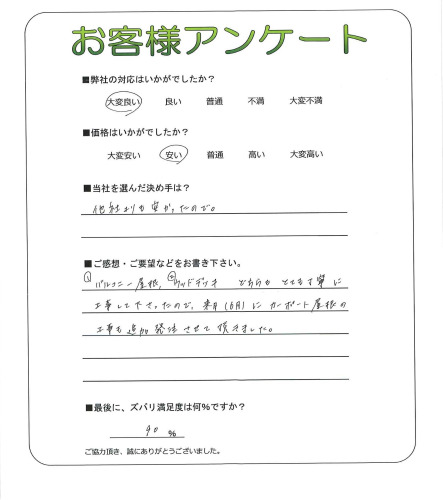 お客様アンケート
■弊社の対応はいかがでしたか？
大変良い 良い 普通 不満 大変不満
■価格はいかがでしたか？
大変安い 安い 普通 高い 大変高い
■当社を選んだ決め手は？
他社よりも安かったので。
■ご感想・ご要望などをお書き下さい。
バルコニー屋根、ウッドデッキ どちらもとても丁寧に
工事して下さったので、来月(6月)にカーポート屋根の
工事も追加発注させて頂きました。
■最後に、ズバリ満足度は何%ですか？
90 %
ご協力頂き、誠にありがとうございました。